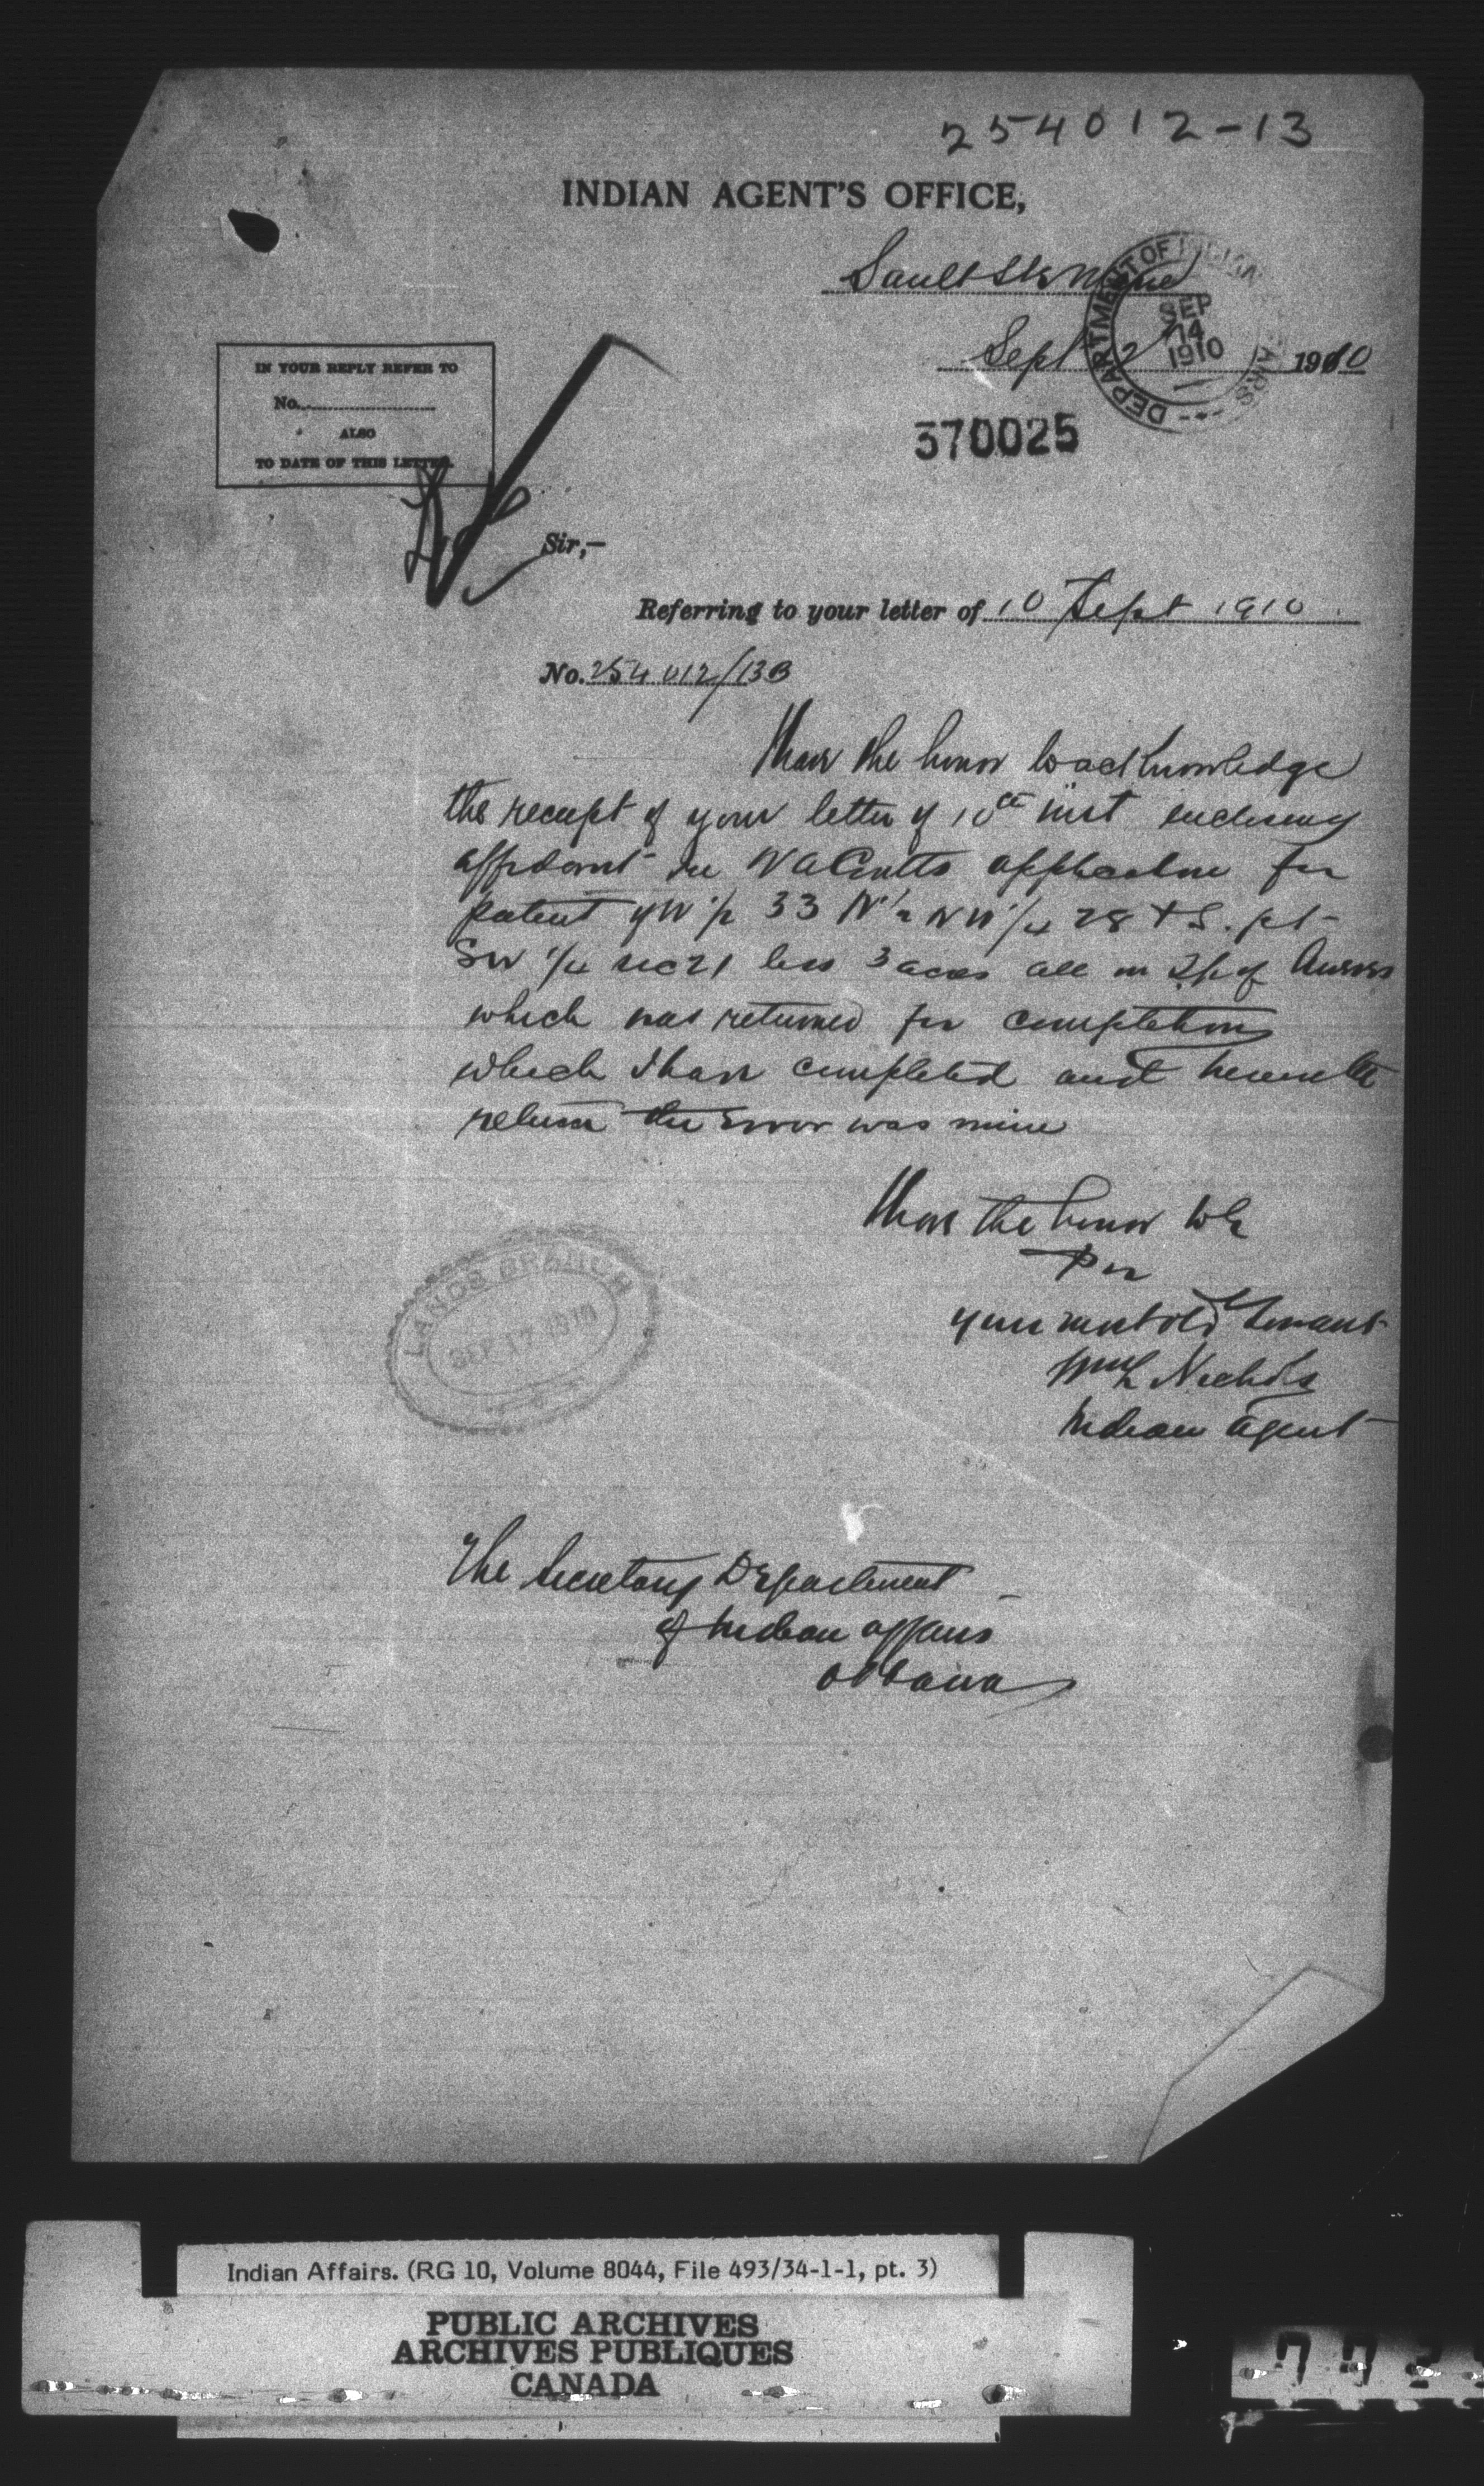 254012-13
INDIAN AGENT'S OFFICE,
Sault Ste Marie
Sept 1910
DEPARTMENT OF INDIAN AFFAIRS
SEP
14
1910
370025
IN YOUR REPLY REFER TO
No.
ALSO
TO DATE OF THIS LETTER.
Sir,—
Referring to your letter of 10 Sept 1910.
No. 254012/13B
I have the honor to acknowledge
the receipt of your letter of 10th inst enclosing
affidavit in application for
patent of W 1/2 33 N 1/2 NW 1/4 28 + S. pt
SW 1/4 sec 21 less 3 acres all in Tp of
which was returned for completion
which I have completed and herewith
return the Error was mine
I have the honor to be
Sir
your most obt Servant
Wm L Nichols
Indian agent
LANDS BRANCH
SEP 17 1910
The Secretary Department
of Indian affairs
Ottawa
Indian Affairs. (RG 10, Volume 8044, File 493/34-1-1, pt. 3)
PUBLIC ARCHIVES
ARCHIVES PUBLIQUES
CANADA